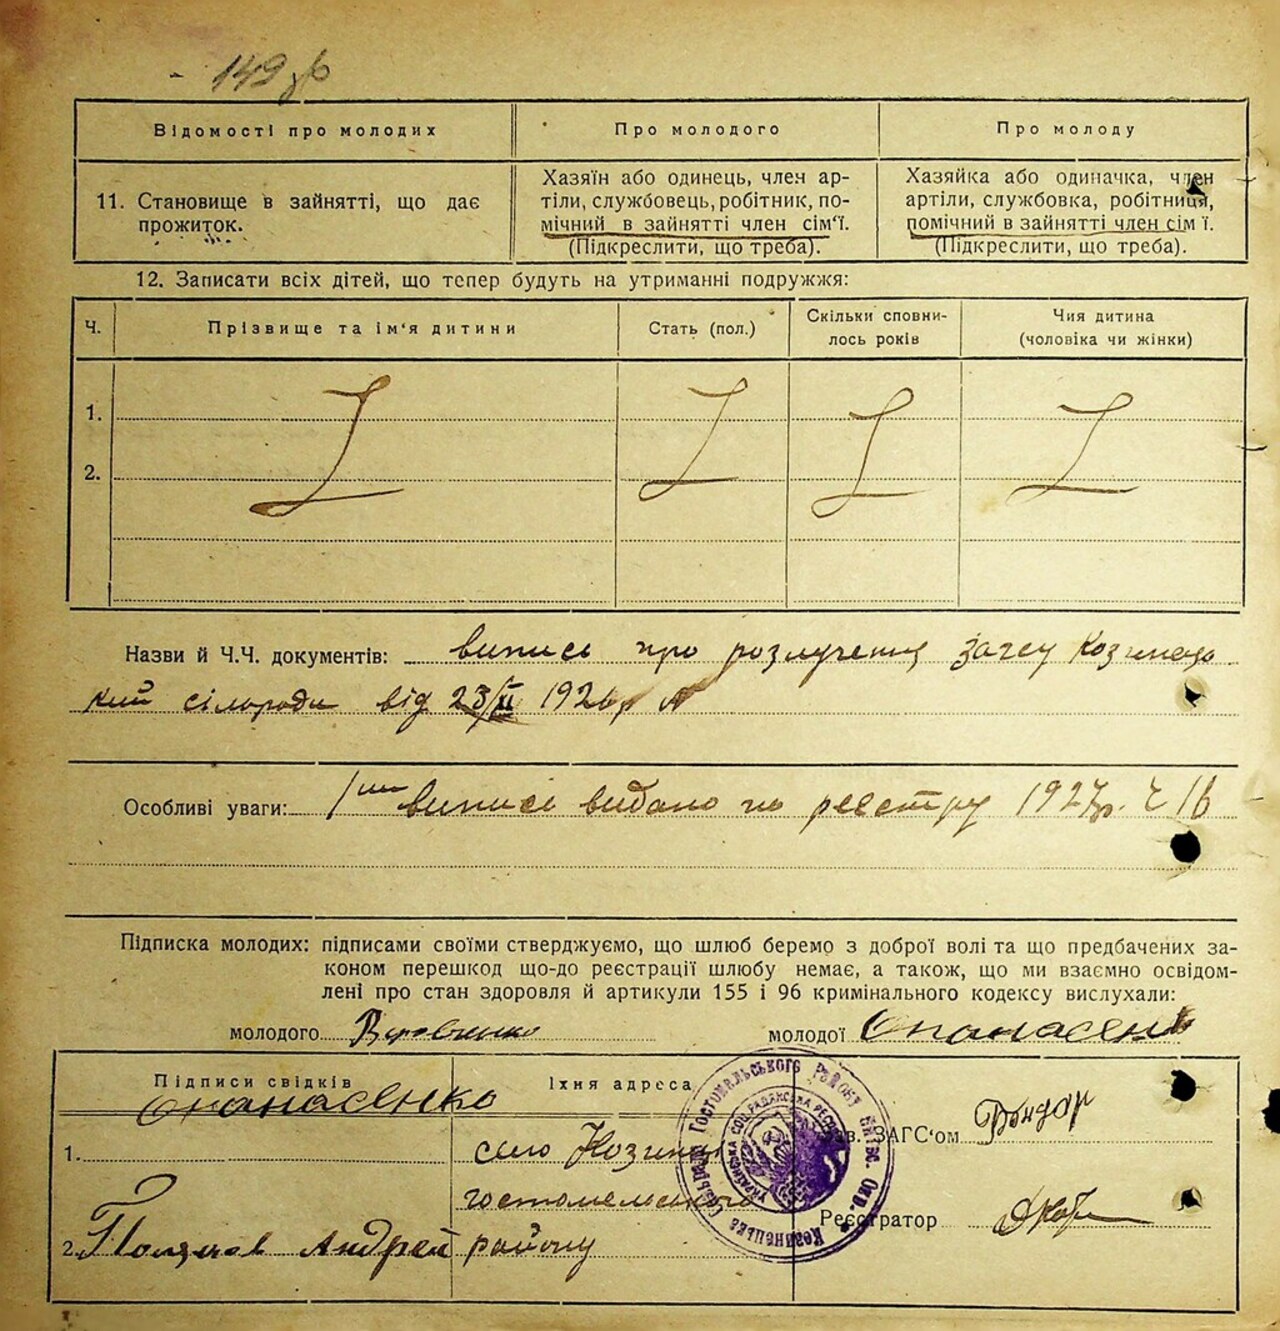 149 зв
Відомості про молодих
Про молодого
Про молоду
11. Становище в зайнятті, що дає
прожиток.
Хазяїн або одинець, член ар-
тіли, службовець, робітник, по-
мічний в зайнятті член сім'ї.
(Підкреслити, що треба).
Хазяйка або одиначка, член
артіли, службовка, робітниця,
помічний в зайнятті член сім ї.
(Підкреслити, що треба).
12. Записати всіх дітей, що тепер будуть на утриманні подружжя:
Ч.
Прізвище та ім'я дитини
Стать (пол.)
Скільки сповни-
лось років
Чия дитина
(чоловіка чи жінки)
1.
2.
Назви й Ч.Ч. документів: випись про розлучення загсу Козинець
кий сілради від 23/ІІ 1926р
Особливі уваги: 1шу випись видано по реєстру 1927р. Ч 16
Підписка молодих: підписами своїми стверджуємо, що шлюб беремо з доброї волі та що предбачених за-
коном перешкод що-до реєстрації шлюбу немає, а також, що ми взаємно освідом-
лені про стан здоровля й артикули 155 і 96 кримінального кодексу вислухали:
молодого
молодої Опанасенк
Підписи свідків
Їхня адреса
Опанасенко
1.
село Козинці
гостомельського
району
2. Поляков Андрей
Зав. ЗАГС'ом Бондар
Реєстратор
Козинецька Сільрада Гостомельського Району Київс. Окр.
Українська Соц. Радянська Респ